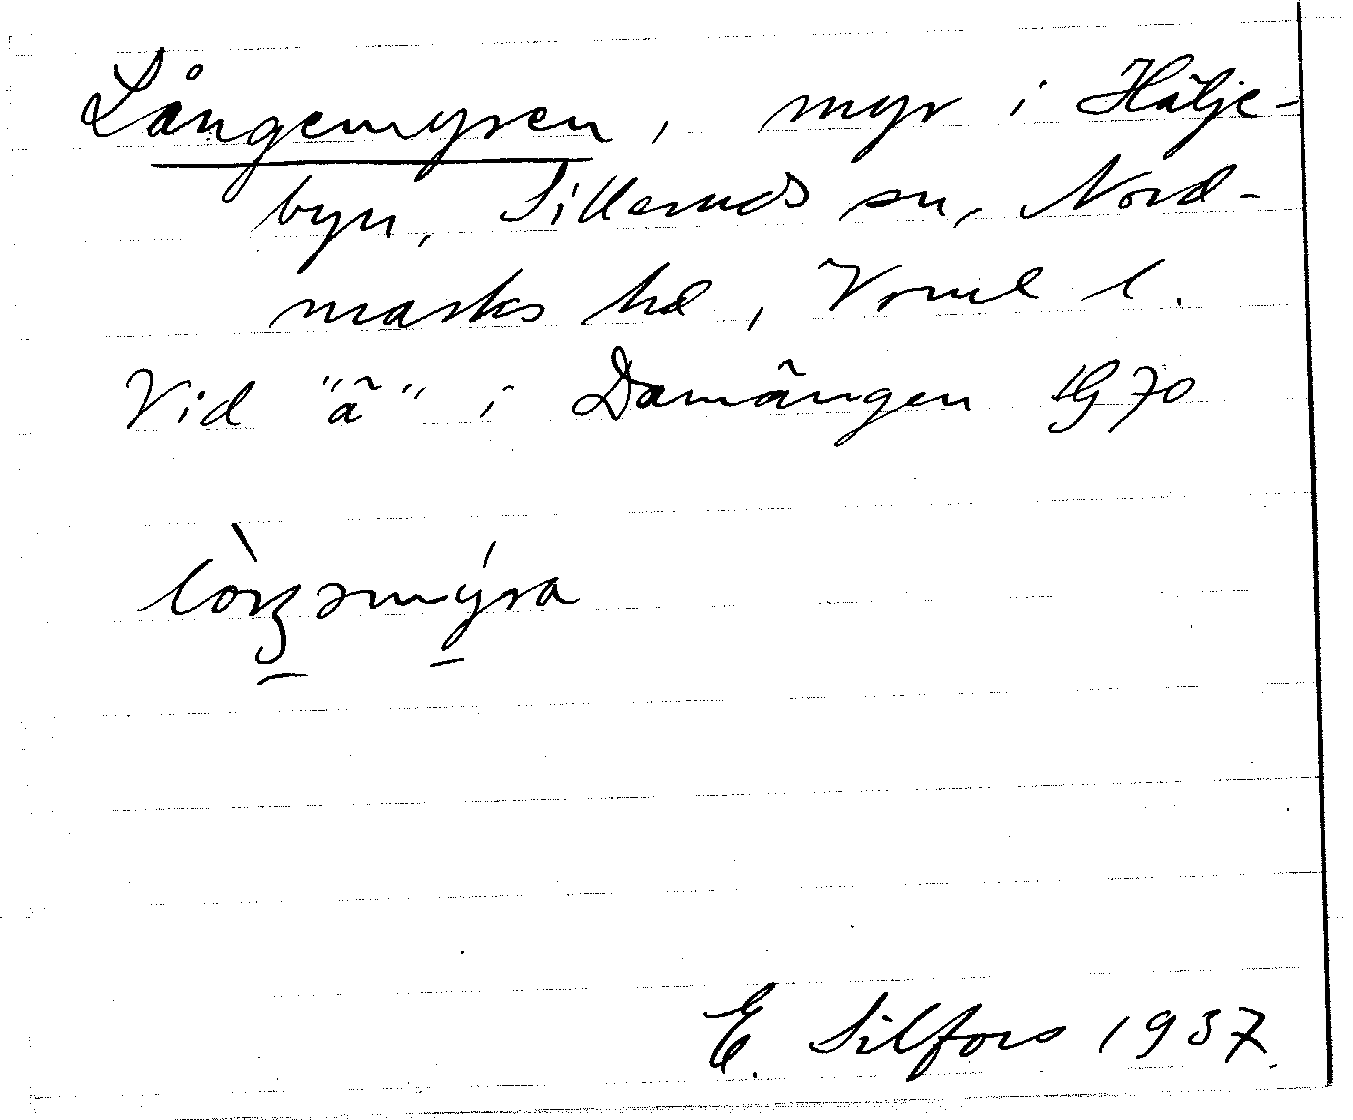 Långemyren, myr i Hälje-
byn, Silleruds sn, Nord-
marks hd, Vrml l.
Vid "ä" i Damängen 1G 70
lòŋəmýra
E. Silfors 1937.